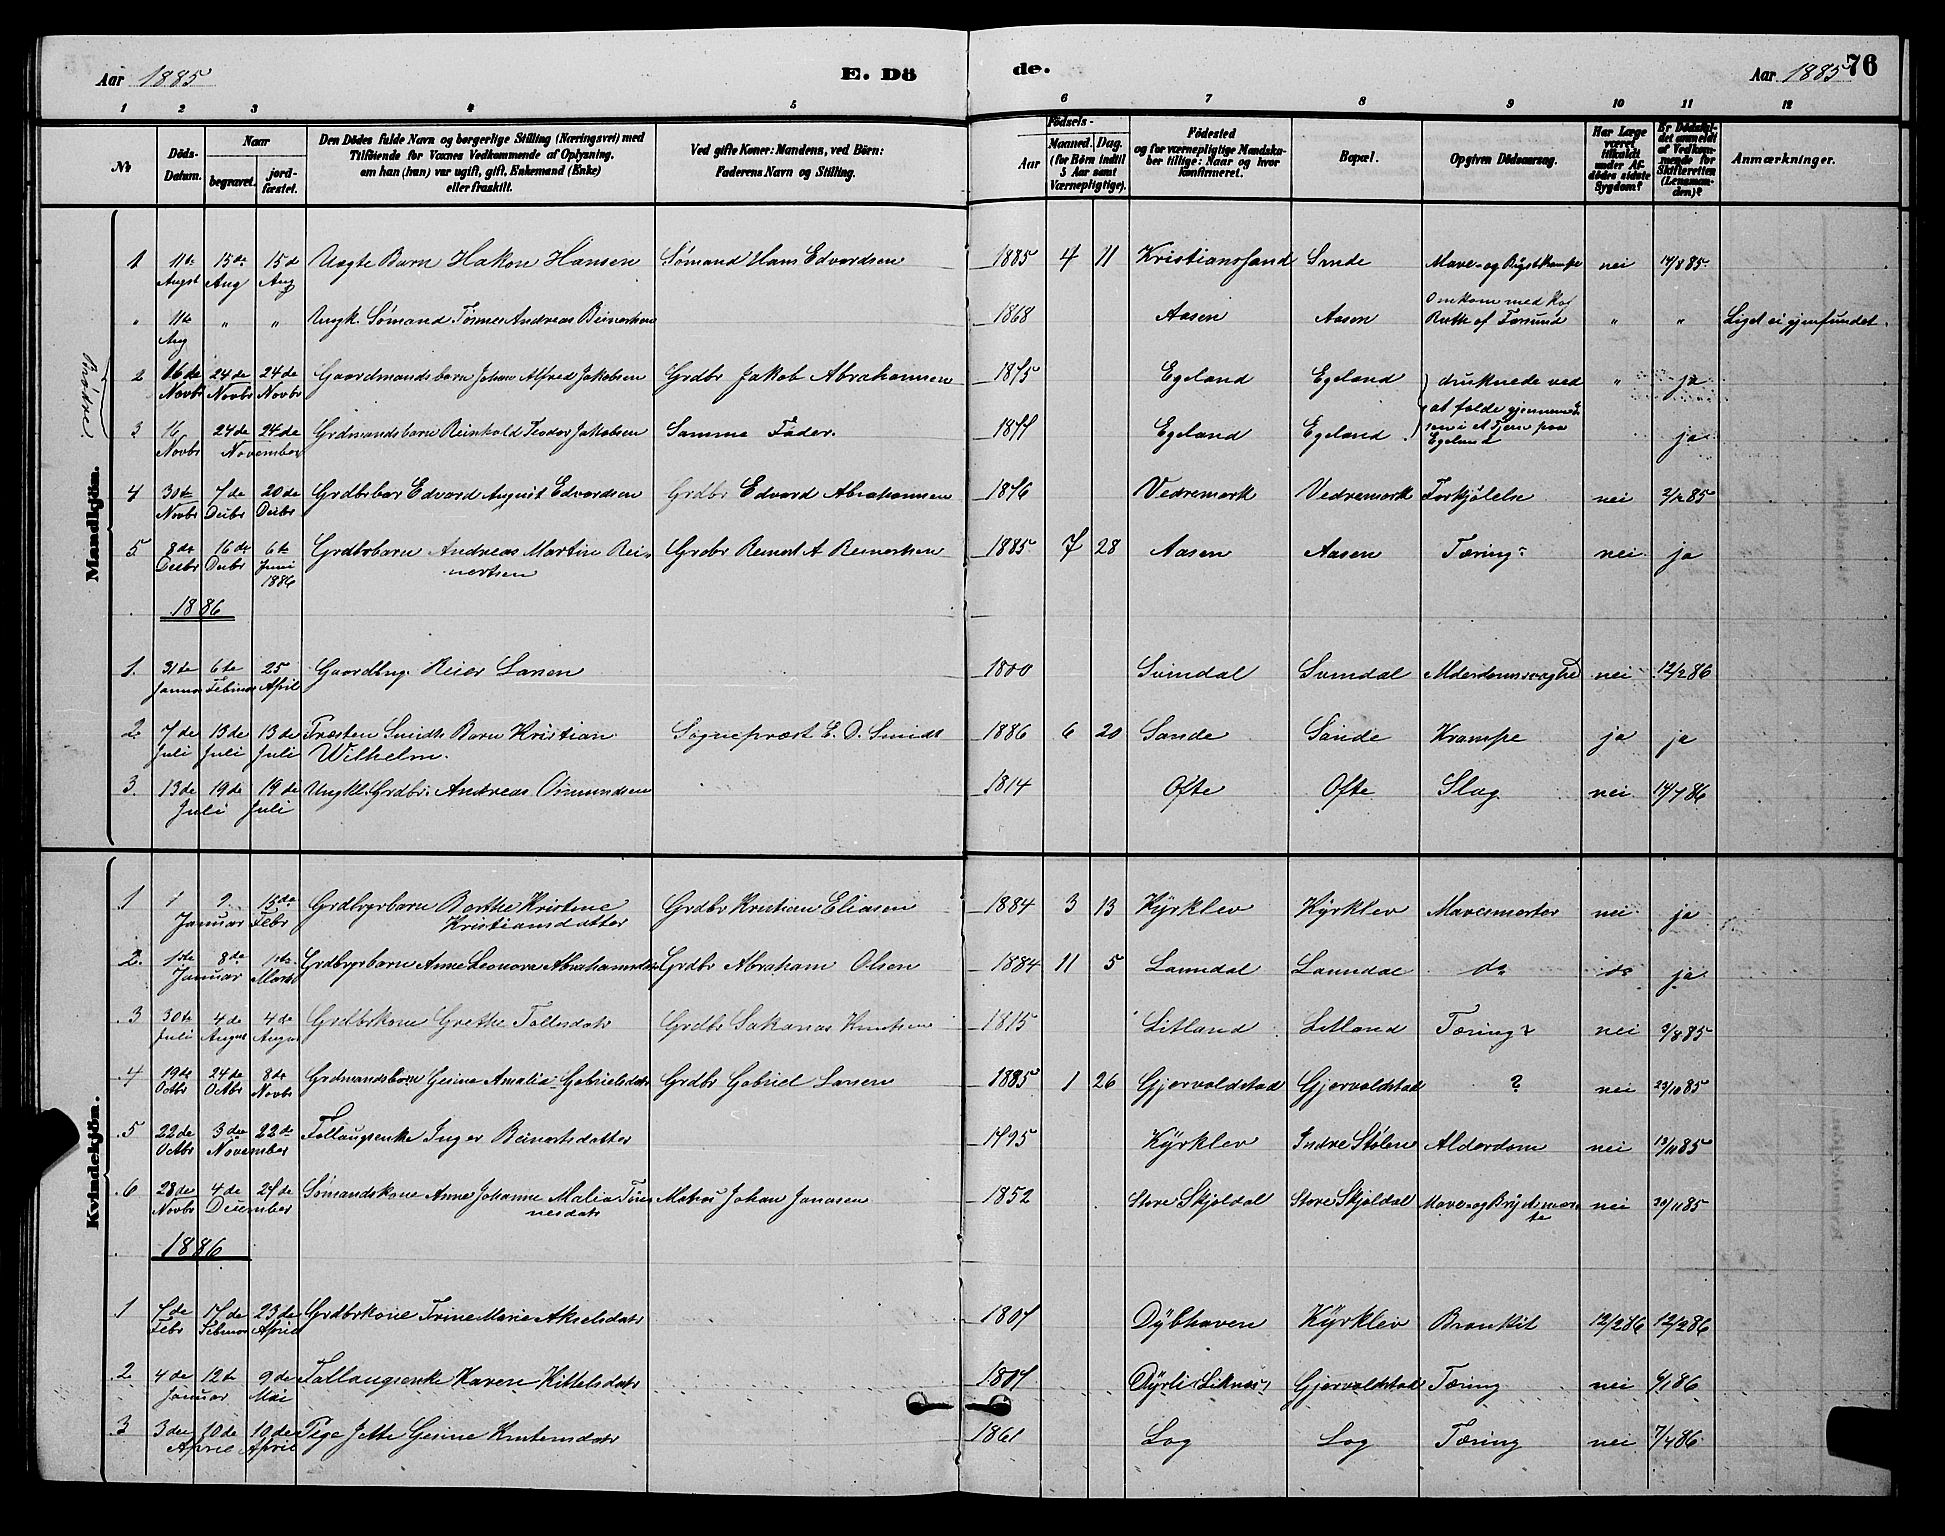 Aar 1885 E. Dö de. Aar 1885 76
1 2 3 4 5 6 7 8 9 10 11 12
№
Döds-Datum.
Naar
begravet.
jord-fæstet.
Den Dödes fulde Navn og borgerlige Stilling (Næringsvei) med
Tilföiende for Voxnes Vedkommende af Oplysning,
om han (hun) var ugift, gift, Enkemand (Enke)
eller fraskilt.
Ved gifte Koner: Mandens, ved Börn:
Faderens Navn og Stilling.
Födsels-
Aar
Maaned. Dag.
(for Börn indtil
5 Aar samt
Værnepligtige).
Födested
og for værnepligtige Mandska-
ber tillige: Naar og hvor
konfirmeret.
Bopæl.
Opgiven Dödsaarsag.
Har Læge
været
tilkaldt
under Af-
dödes sidste
Sygdom?
Er Dödsfal-
det anmeldt
af Vedkom-
mende for
Skifteretten
(Lensman-
den)?
Anmærkninger.
Mandkjön.
1 11te Augst 15de Aug 15de Aug Uægte Barn Hakon Hansen Sømand Hans Edvardsen 1885 4 11 Kristianssand Sande nei 14/8 85
" 11te Aug " " Ungk. Sømand Tørnes Andreas Reinertsen 1868 Aasen Aasen Omkom med
Ruth af Farsund " " Liget ei gjenfundet.
2 16de Novbr 24de Novbr 24de Novbr Gaardmandsbarn Johan Alfred Jakobsen Grdbr Jakob Abrahamsen 1875 Egeland Egeland druknede ved " ja
3 16 Novbr 24de 24de November Grdmandsbarn Reinhold Teodor Jakobsen Samme Fader. 1877 Egeland Egeland at falde gjennem
i et Tjern paa
Egeland ja
4 30te Novbr 7de Decbr 20de Decbr Grdbrbar Edvard August Edvardsen Grdbr Edvard Abrahamsen 1876 Vedremork Vedremork Forkjølelse nei 2/12 85
5 8de Decbr 16de Decbr 6te Juni 1886 Grdbrbarn Andreas Martin Rei-
nertsen Grdbr Reinert A Reinertsen 1885 7 28 Aasen Aasen Tæring? nei ja
1886
1. 31te Januar 6te Februar 25 April Gaardbrug. Reier Larsen 1800 Svindal Svindal Alderdomssvaghed nei 12/2 86
2. 7de Juli 13de Juli 13de Juli Præsten Smidts Barn Kristian
Wilhelm. Sognepræst E. O. Smidt 1886 6 20 Sande Sande Krampe ja ja
3. 13de 19de Juli 19de Juli Ungkl. Grdbr. Andreas Osmundsen 1814 Ofte Ofte Slag nei 14/7 86
Kvindekjön.
1 1 9 Januar 15de Febr Grdbrgrbarn Berthe Kristine
Kristiansdatter Grdbr Kristian Eliasen 1884 3 13 Kÿrklev Kÿrklev Mavesmerter nei ja
2. 1ste 8de Januar 1ste Marts Grdbrgrbarn Anne Leonore Abrahamsdatr Grdbr Abraham Olsen 1884 11 5 Lauvdal Lauvdal do do ja
3 30te Juli 4de August 4de August Grdbrkone Grethe Tollesdatr Grdbr Sakarias Knutsen 1815 Litland Litland Tæring? nei 3/8 85
4 19de Octbr 24de Octbr 8de Novbr Grdmandsbarn Gesine Amalia Gabrielsdatr Grdbr Gabriel Larsen 1885 1 26 Gjervoldstad Gjervoldstad ? nei 23/10 85
5 22de Octbr 3die 22de November Follaugsenke Inger Reinertsdatter 1795 Kÿrklev Indre Stølen Alderdom nei 13/11 85
6 28de Novbr 4de 27de December Sømandskone Anne Johanne Malia Tør-
nesdatr Matros Johan Jonassen 1852 Store Skjoldal Store Skjoldal Mave- og Brystsmer-
te nei 30/11 85
1886
1 7de Febr 17de Februar 23de April Grdbrkone Trine Marie Akselsdatr 1807 Dÿbhaven Kÿrklev Bronkit 12/2 86 12/2 86
2 4de 12te Januar 9de Mai Follaugsenke Karen Kittelsdatr 1807 Dÿrli (Liknes) Gjervoldstad Tæring nei 6/1 86
3 3die 10de April 10de April Pige Jette Gesine Knutsensdatr 1861 Log Log Tæring nei 7/4 86